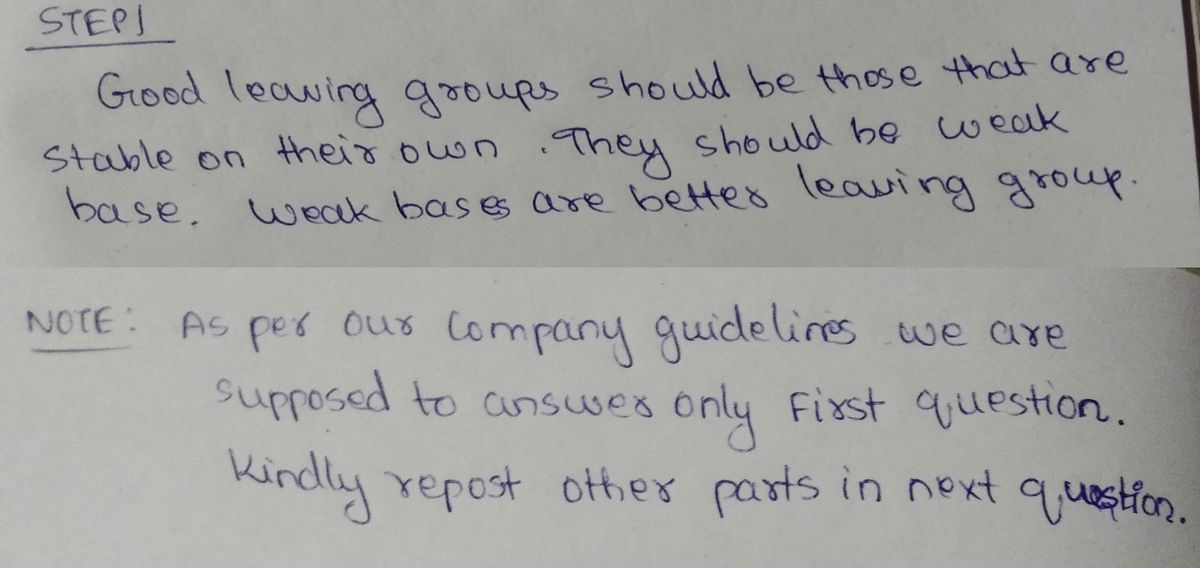 STEP1
Good leaving groups should be those that are
stable on their own . They should be weak
base. weak bases are better leaving group.
NOTE: As per our Company guidelines we are
supposed to answer only First question.
Kindly repost other parts in next question.